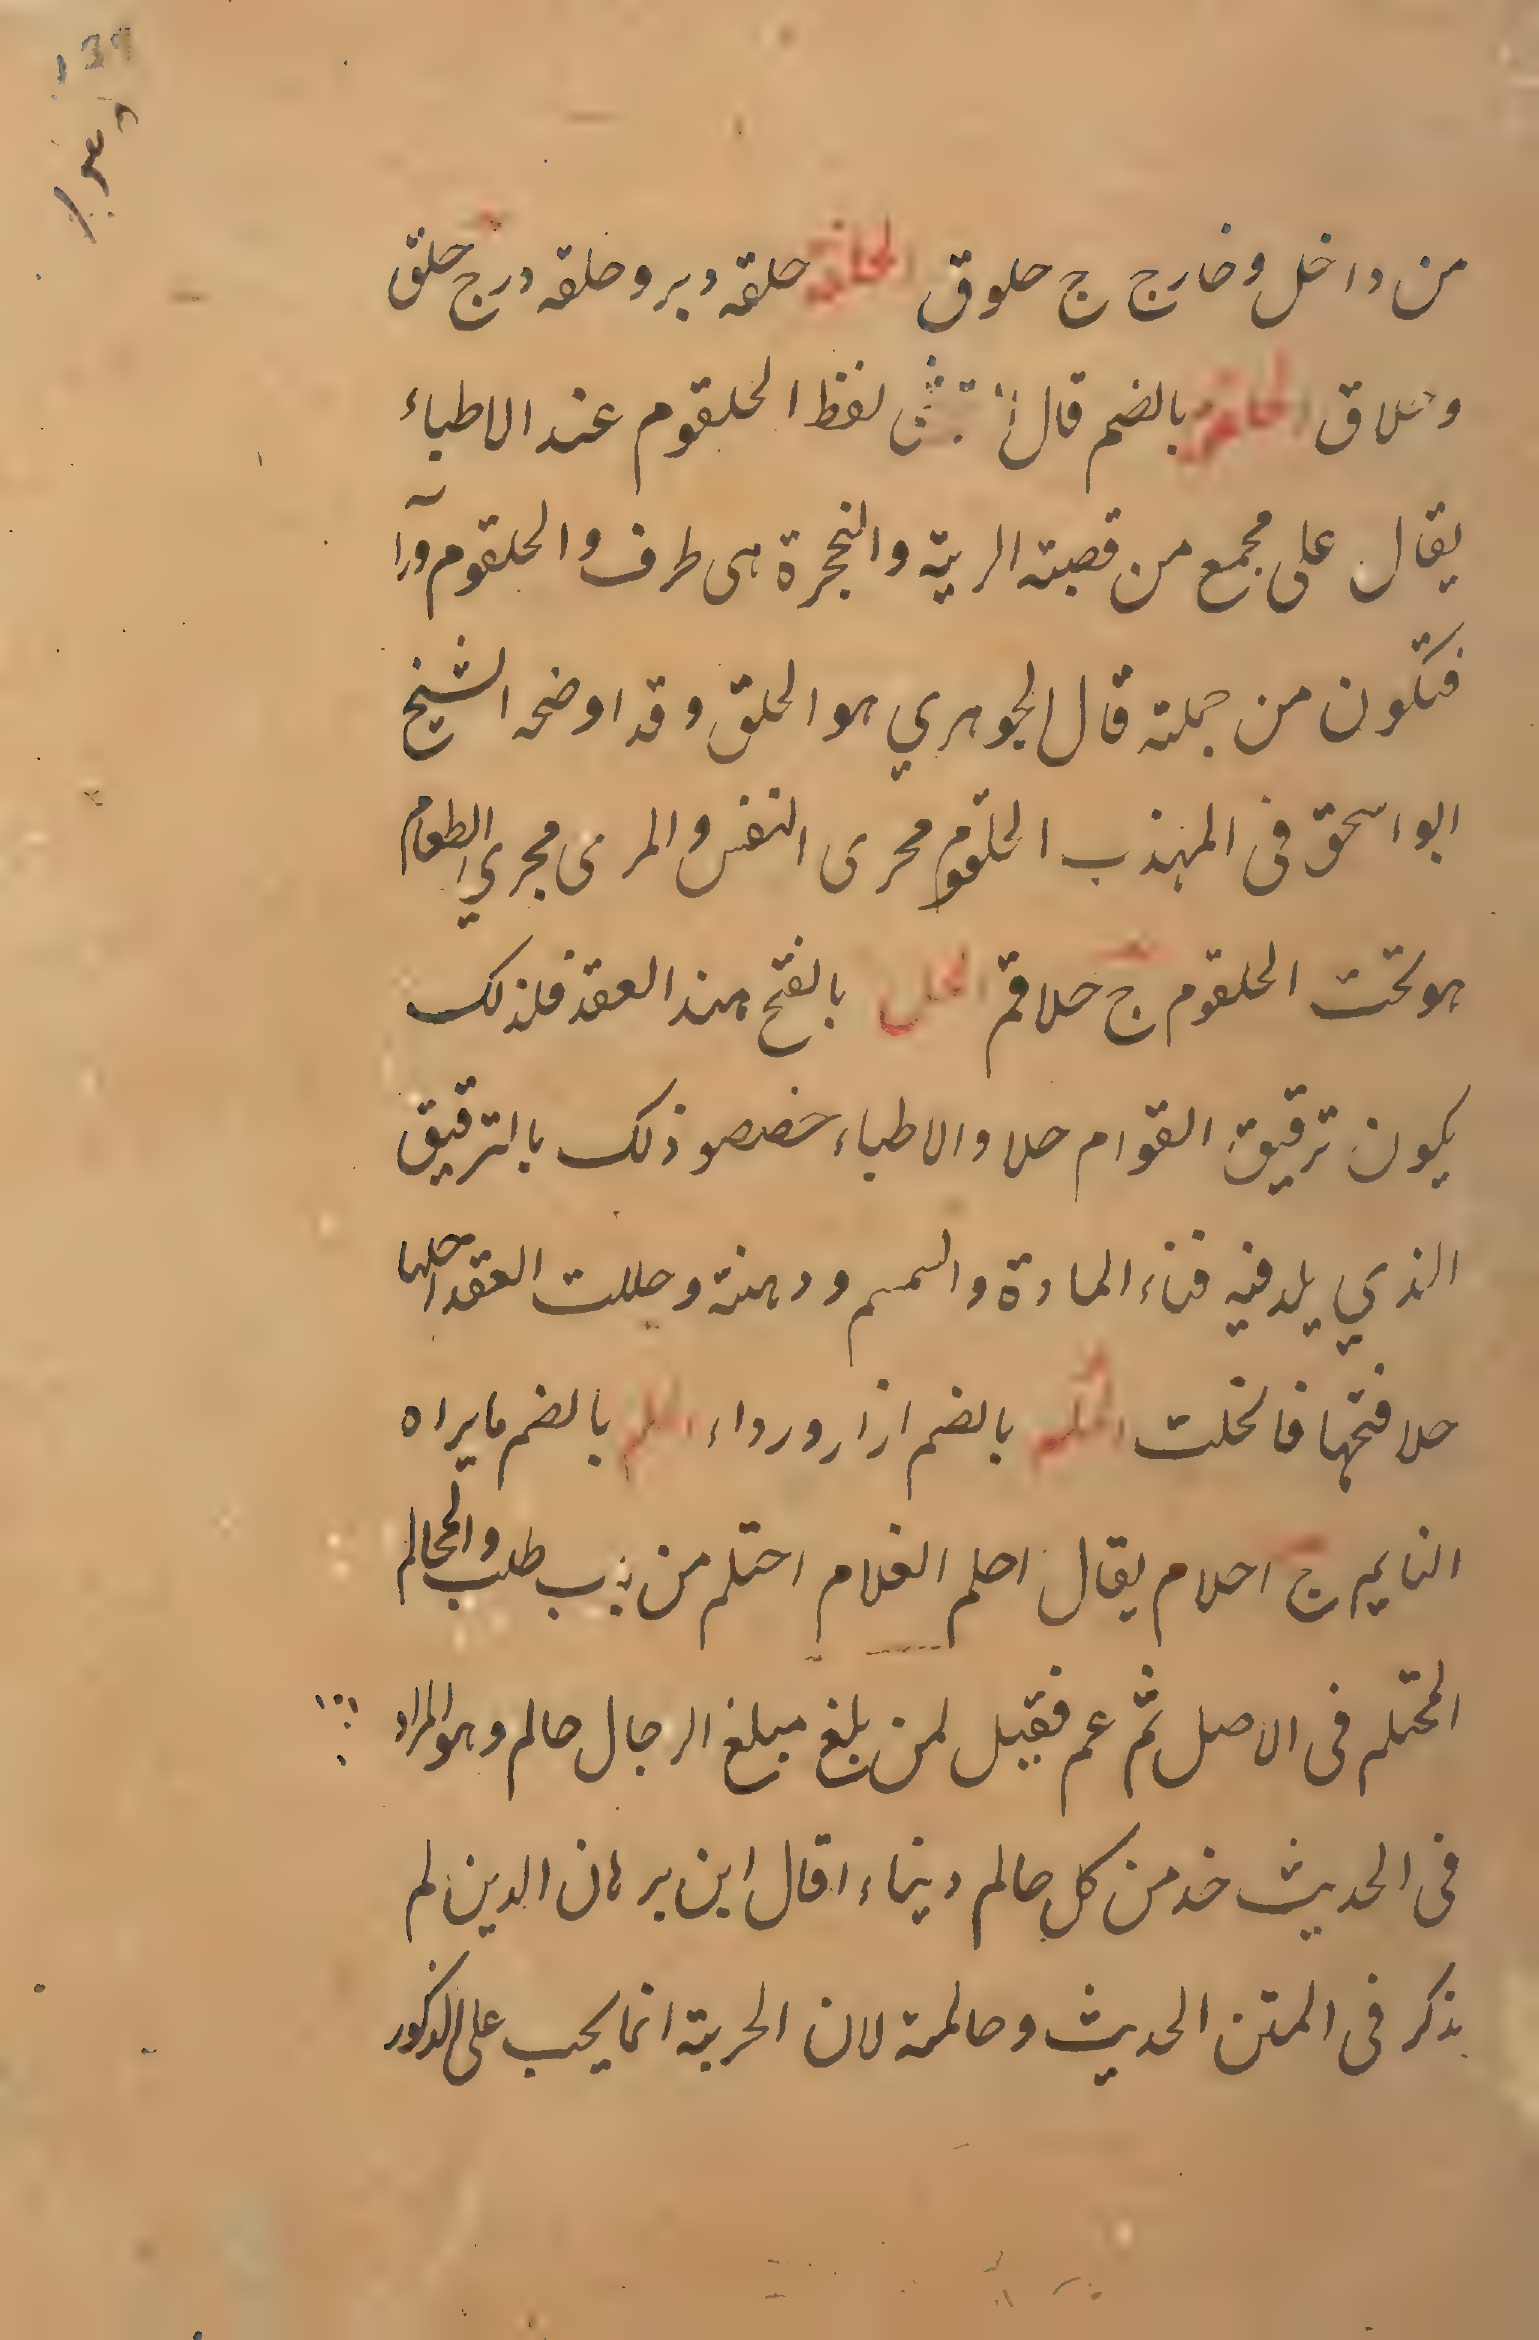 من داخل وخارج ج حلوق الحلقه حلقه دبر وحلقه درج ج حلق
وحلاق الحلقوم بالضم قال لفظ الحلقوم عند الاطباء
يقال على مجمع من قصبته الرية والحنجرة هى طرف والحلقوم ورآ
فتكون من جملته قال الجوهري هو الحلق وقد اوضحه الشيخ
ابو اسحق فى المهذب الحلقوم مجرى النفس والمرى مجري الطعام
هو تحت الحلقوم ج حلاقم الحل بالفتح هند العقد فلذلك
يكون ترقيق القوام حلا والاطباء خصصو ذلك بالترقيق
الذي يلد فيه فناء المادة والسمسم ودهنه وحللت العقد احلها
حلا فتحتها فانحلت الحلة بالضم ازار ورداء الحلم بالضم ما يراه
النايم ج احلام يقال احلم الغلام احتلم من باب طلب والحالم
المحتلم فى الاصل ثم عم فقيل لمن بلغ مبلغ الرجال حالم وهو المراد
فى الحديث خذ من كل حالم ديناء ا قال ابن برهان الدين لم
يذكر فى المتن الحديث وحالمة لان الحرية انما يحب على الذكور